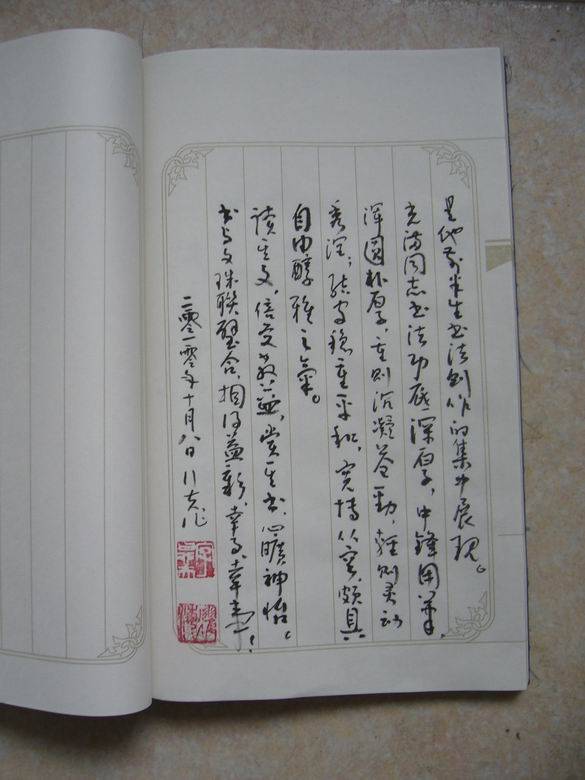 是他前半生书法创作的集中展现。
光濤同志书法功底深厚，中锋用笔，
浑圆朴厚，重则沉凝苍劲，轻则灵动
秀润；结字稳重平和，宽博从容，颇具
自由醇雅之氣。
读其文，倍受教益，赏其书，心旷神怡。
书与文珠联璧合，相得益彰，幸甚，幸甚！
二零一零年十月八日